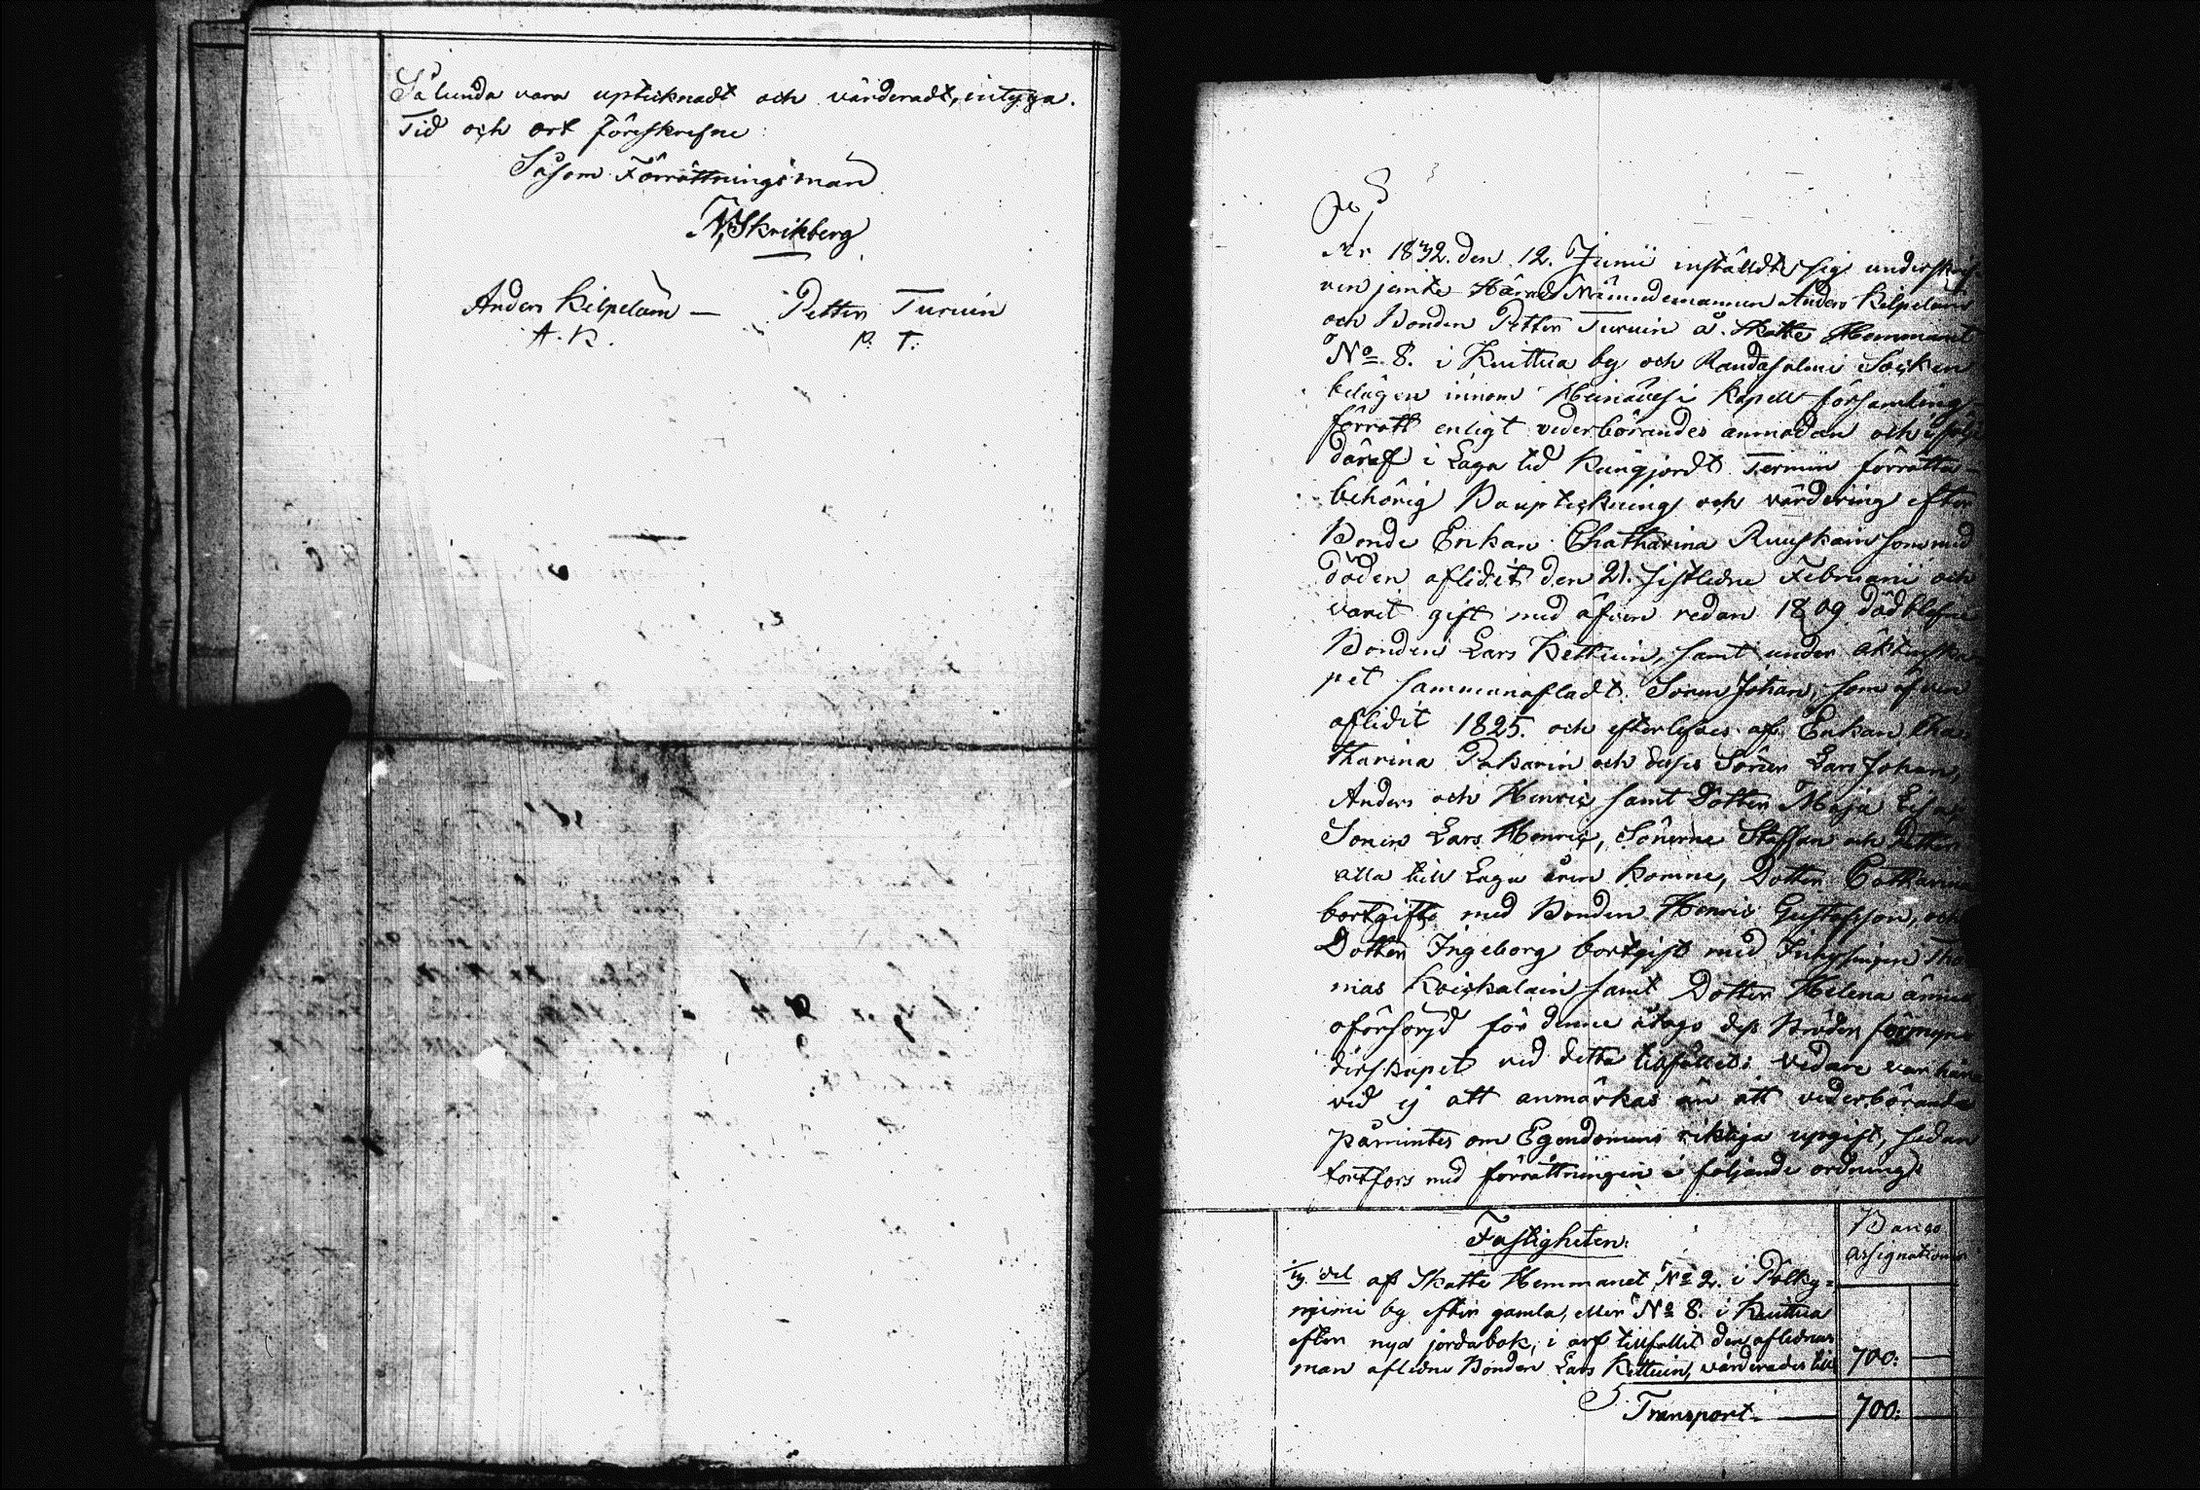 Sålunda vara uptecknadt och värderadt, intyga.
Tid och ort föreskrefne:
Såsom Förrättningsman
N Skrikberg
Anders Kilpeläin — Petter Turuin
A. K. P. T.
År 1832. den 12. Junii instäldte sig underskref-
ven jemte Nämndemannen Anders Kilpeläin
och Bonden Petter Turuin å Skatte Hemmanet
No 8. i Kuittua by och Randasalmi Socken
belägen innom Heinävesi Kapell församling
förrätt enligt vederbörandes anmodan och
däraf i Laga tid kungjordt Termin förrätta
behörig Bouptekning och värdering efter
Bonde Enkan Chatharina Ruuskain som med
döden aflidit den 21. sistledne Februarii och
varit gift med äfven redan 1809 död blefne
Bonden Lars Kettuin, samt under äktenska-
pet sammanafladt. Sonen Johan, som äfven
aflidit 1825. och efterlefves af Enkan Cha-
tharina Pakarin och dess Söner Lars Johan,
Anders och Henric samt Dotter Maja Lisa,
Sonen Lars Henric, Sönerne Staffan och Petter
alla till Laga åren komne, Dotter Catharina
bortgift med Bonden Henric Gustafsson, och
Dotter Ingeborg bortgift med Inhysingen Tho-
mas Koickalain samt Dotter Helena ännu
oförsörjd för denne åtogs dess Broder förmyn-
derskapet vid detta tillfället: vidare var här
vid ej att anmärkas än att vederbörande
påmintes om Egendomens riktiga upgift, sedan
fortfors med förrättningen i följande ordning:
Fastigheten: Banco
Assignationer
del af Skatte Hemmanet No 2. i Pölky-
niemi by efter gamla, eller No 8. i Kuittua
efter nya jordabok, i arf tillfallit den aflednas
man aflidne Bonden Lars Kettuin, värderades till 700: —
Transport. — 700: —